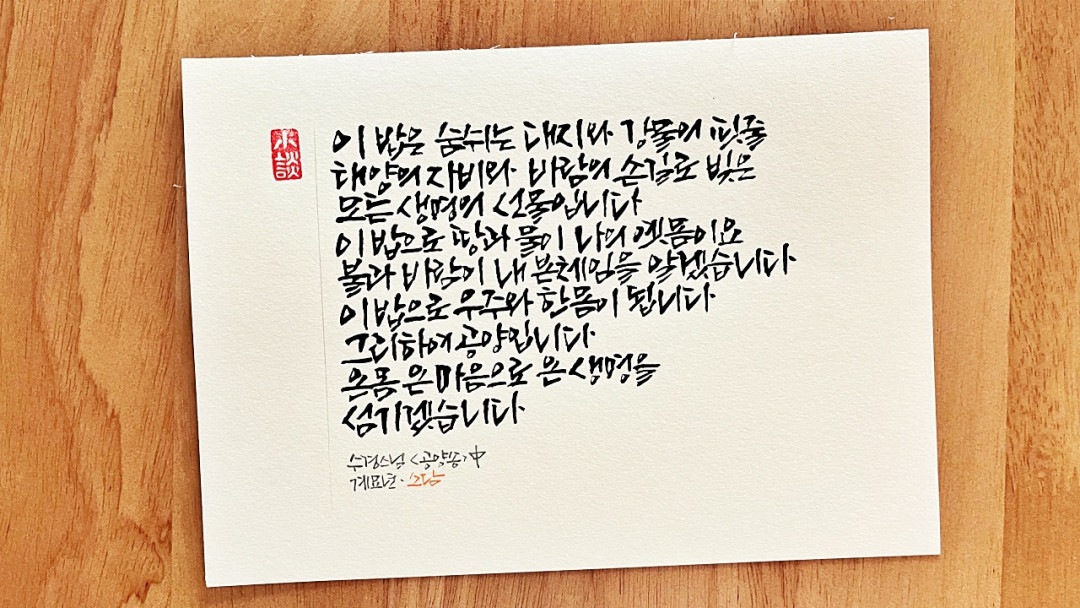 이 밥은 숨쉬는 대지와 강물의 핏줄
태양의 자비와 바람의 손길로 빚은
모든 생명의 선물입니다
이 밥으로 땅과 물이 나의 옛몸이요
불과 바람이 내 본체임을 알겠습니다
이 밥으로 우주와 한몸이 됩니다
그리하여 공양입니다
온몸 온마음으로 온 생명을
섬기겠습니다
수경스님 <공양송> 中
계묘년 · 소담